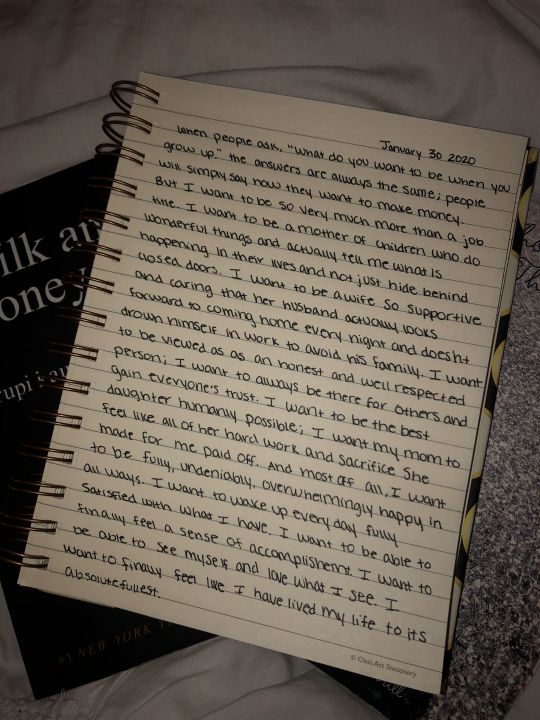 January 30 2020
When people ask, "What do you want to be when you
grow up." the answers are always the same; people
will simply say how they want to make money.
But I want to be so very much more than a job
title. I want to be a mother of children who do
wonderful things and actually tell me what is
happening in their lives and not just hide behind
closed doors. I want to be a wife so supportive
and caring that her husband actually looks
forward to coming home every night and doesn't
drown himself in work to avoid his family. I want
to be viewed as as an honest and well respected
person; I want to always be there for others and
gain everyone's trust. I want to be the best
daughter humanly possible; I want my mom to
feel like all of her hard work and sacrifice she
made for me paid off. And most off all, I want
to be fully, undeniably, overwhelmingly happy in
all ways. I want to wake up every day fully
satisfied with what I have. I want to be able to
finally feel a sense of accomplishemt. I want to
be able to see myself and love what I see. I
want to finally feel like I have lived my life to its
absolute fullest.
© Class Act Stationery
ilk an
oney
rupi kau
#1 NEW YORK TI